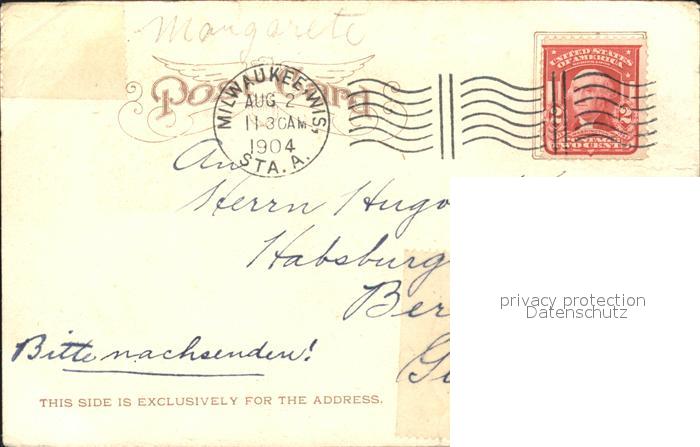 Margarete
Post Card
MILWAUKEE, WIS,
AUG. 2
11-30AM
1904
STA. A.
UNITED STATES
OF AMERICA
2
TWO CENTS
An
Herrn Hugo
Habsburg
Ber
privacy protection
Datenschutz
Bitte nachsenden!
THIS SIDE IS EXCLUSIVELY FOR THE ADDRESS.